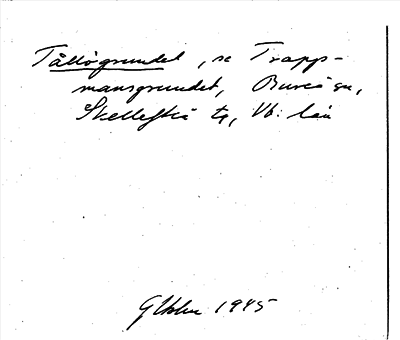 Tållögrundet, se Trapp-
mansgrundet, Bureå sn,
Skellefteå tg, Vb: län
1945